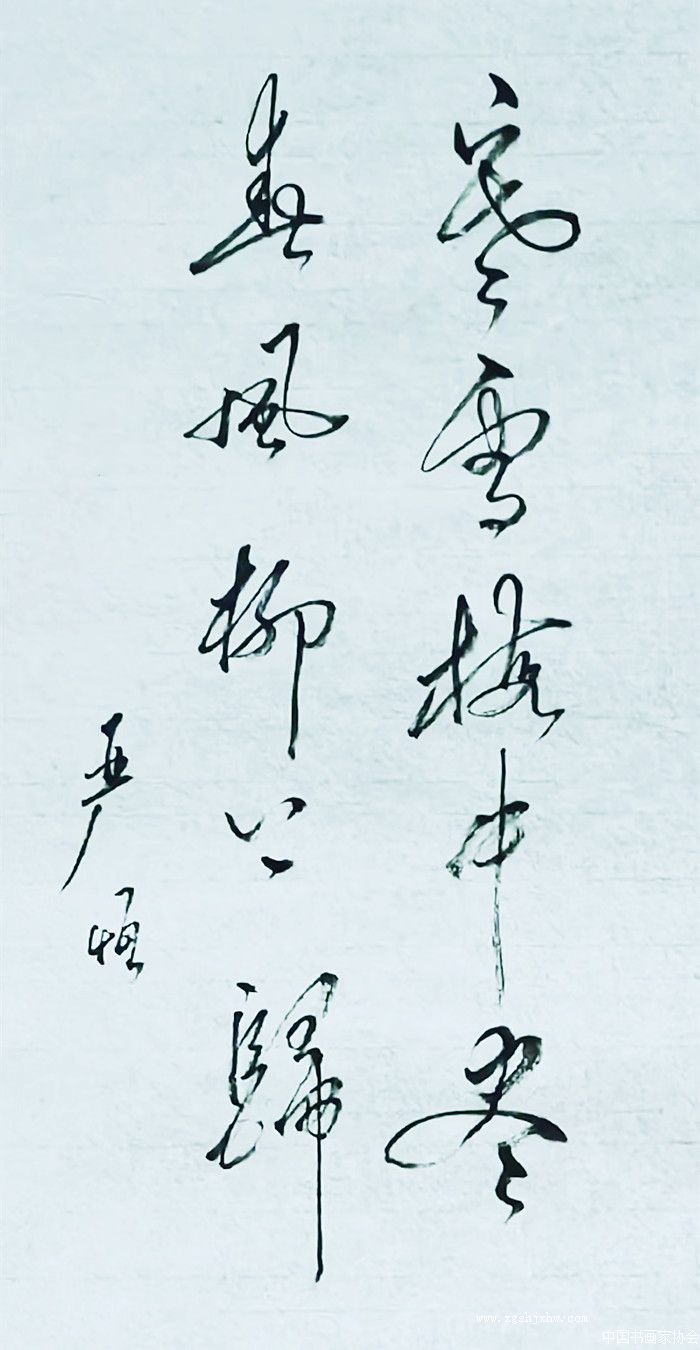 寒雪梅中尽
春風柳上歸
严
www.zgshjxhw.com
中国书画家协会